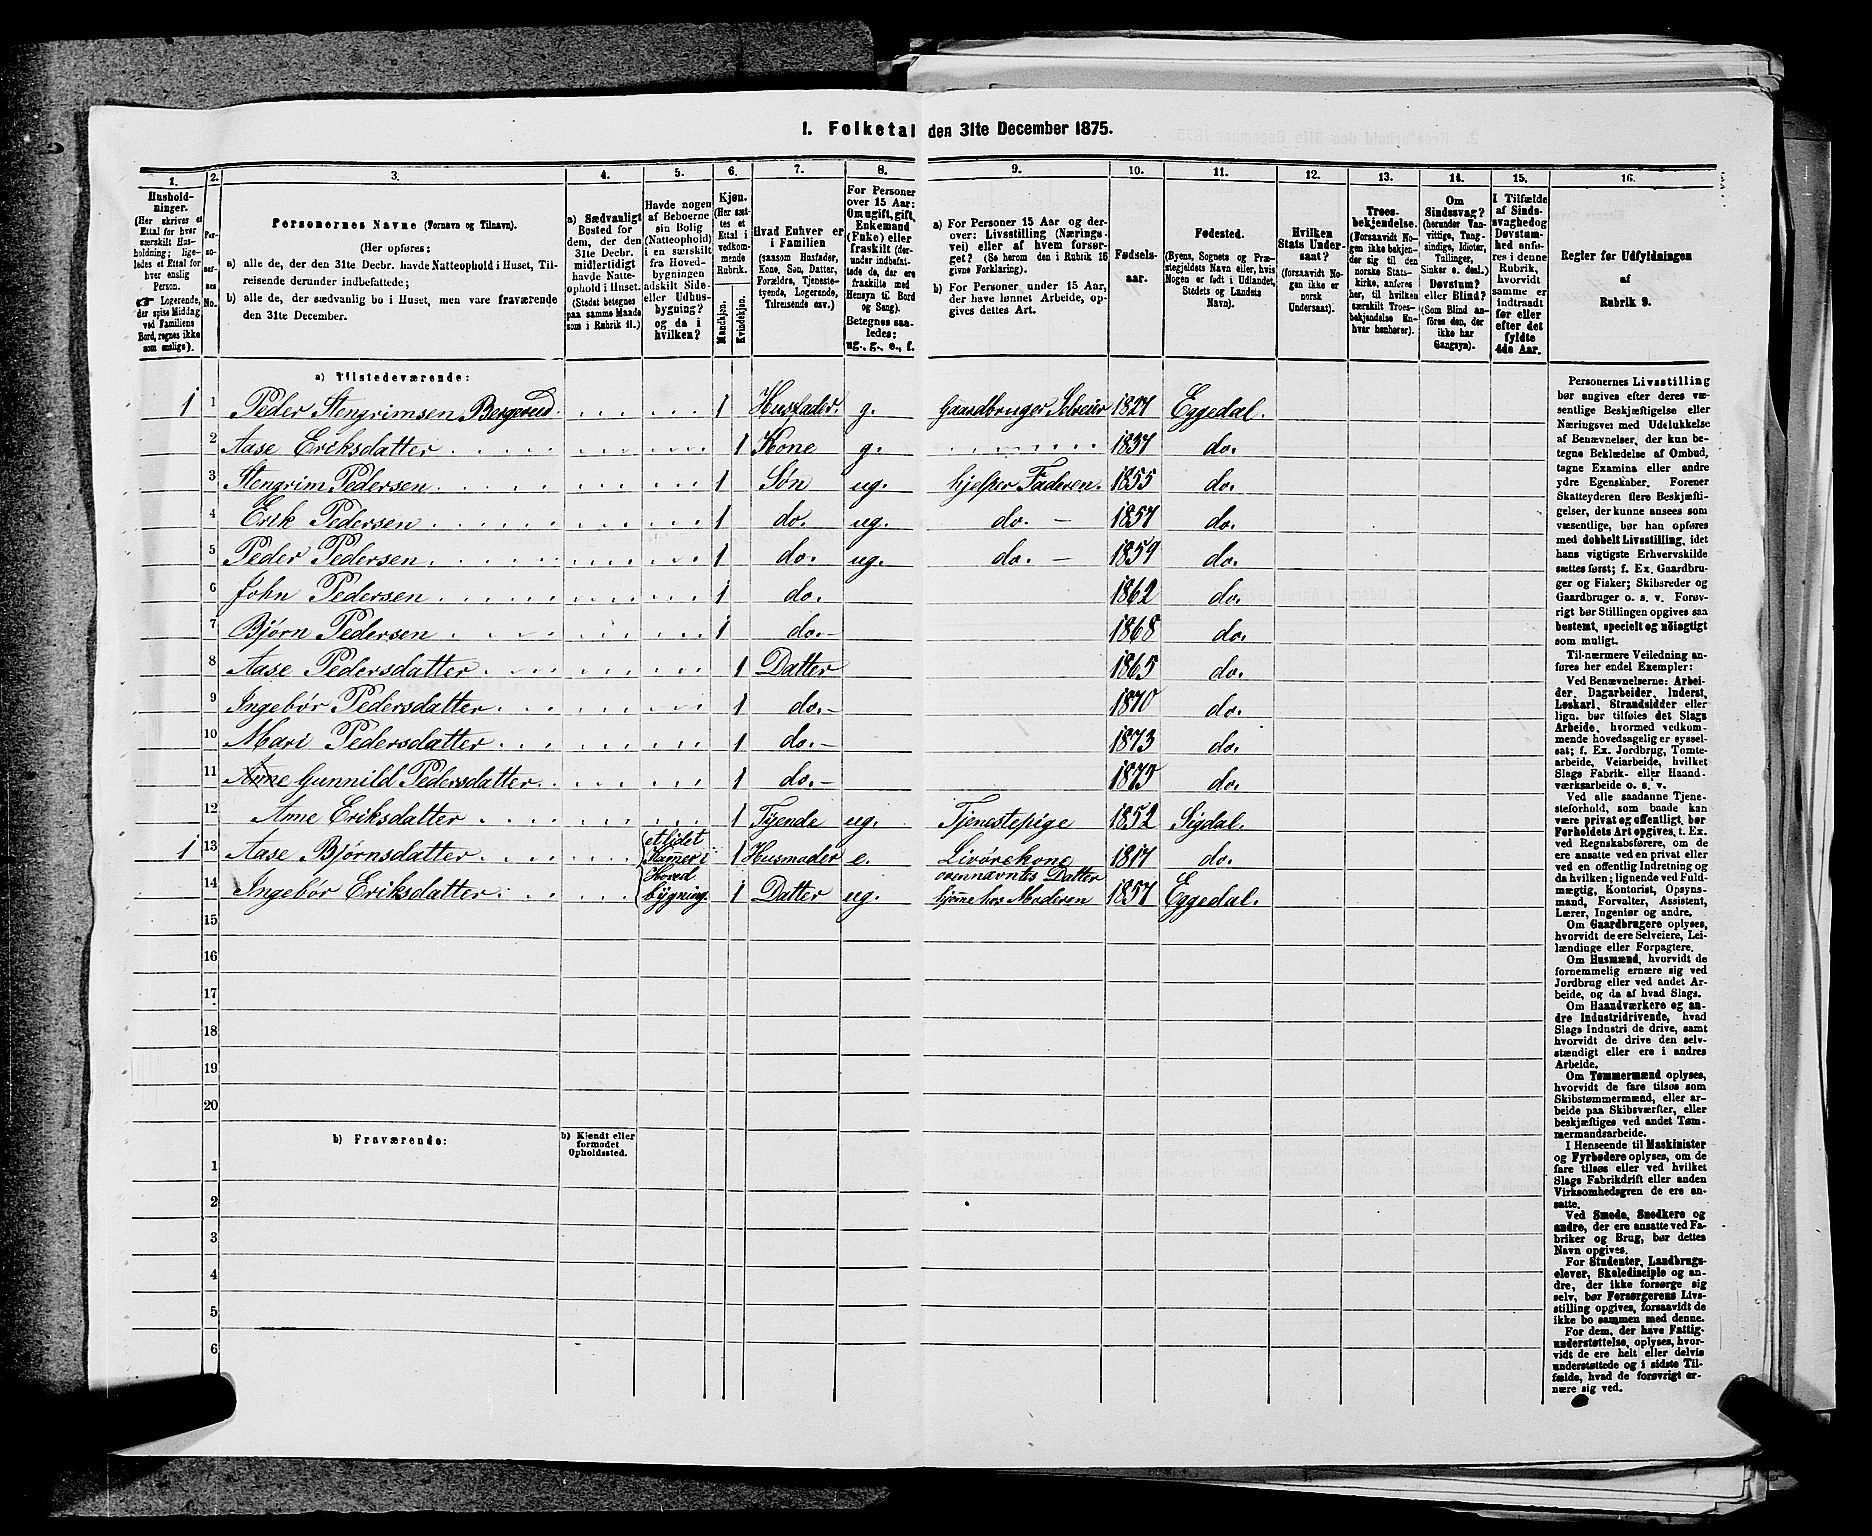 1. Folketal den 31te December 1875.
1.
Husholdninger.
(Her skrives et Ettal for hver særskilt Husholdning; ligeledes et Ettal for hver enslig Person.
☞ Logerende, der spise Middag ved Familiens Bord, regnes ikke som enslige).
2.
Personernes No.
3.
Personernes Navne (Fornavn og Tilnavn).
(Her opføres:
a) alle de, der den 31te Decbr. havde Natteophold i Huset, Tilreisende derunder indbefattede;
b) alle de, der sædvanlig bo i Huset, men vare fraværende den 31te December.
4.
a) Sædvanligt Bosted for dem, der den 31te Decbr. midlertidigt havde Natteophold i Huset.
(Stedet betegnes paa samme Maade som i Rubrik 11.)
5.
Havde nogen af Beboerne sin Bolig (Natteophold) i en særskilt fra Hovedbygningen adskilt Side- eller Udhusbygning? og da i hvilken?
6.
Kjøn.
(Her sættes et Ettal i vedkommende Rubrik.
Mandkjøn.
Kvindekjøn.
7.
Hvad Enhver er i Familien
(saasom Husfader, Kone, Søn, Datter, Forældre, Tjenestetyende, Logerende, Tilreisende osv.)
8.
For Personer over 15 Aar: Om ugift, gift, Enkemand (Enke) eller fraskilt (derunder indbefattede de, der ere fraskilte med Hensyn til Bord og Sang).
Betegnes saaledes: ug., g., e., f.
9.
a) For Personer 15 Aar og derover: Livsstilling (Næringsvei) eller af hvem forsørget? (Se herom den i Rubrik 16 givne Forklaring).
b) For Personer under 15 Aar, der have lønnet Arbeide, opgives dettes Art.
10.
Fødselsaar.
11.
Fødested.
(Byens, Sognets og Præstegjeldets Navn eller, hvis Nogen er født i Udlandet, Stedets og Landets Navn).
12.
Hvilken Stats Undersaat?
(forsaavidt Nogen ikke er norsk Undersaat).
13.
Troesbekjendelse.
(Forsaavidt Nogen ikke bekjender sig til den norske Statskirke, anføres her, til hvilken særskilt Troesbekjendelse Enhver henhører).
14.
Om Sindssvag?
(herunder Vanvittige, Tungsindige, Idioter, Tullinger, Sinker o. desl.)
Døvstum? eller Blind?
(Som Blind anføres den, der ikke har Gangsyn).
15.
I Tilfælde af Sindssvaghed og Døvstumhed anføres i denne Rubrik, hvorvidt samme er indtraadt før eller efter det fyldte 4de Aar.
16.
Regler for Udfyldningen
af
Rubrik 9.
a) Tilstedeværende:
1 1 Peder Stengrimsen Bergerud . . . . 1 Husfader. g. Gaardbruger Selveier 1827 Eggedal.
2 Aase Eriksdatter . . . . 1 Kone g. . . . . 1837 do.
3 Stengrim Pedersen . . . . 1 Søn ug. hjelper Faderen. 1855 do.
4 Erik Pedersen . . . . 1 do. ug. do. – 1857 do.
5 Peder Pedersen . . . . 1 do. ug. do. – 1859 do.
6 John Pedersen . . . . 1 do. 1862 do.
7 Bjørn Pedersen . . . . 1 do.– 1868 do.
8 Aase Pedersdatter . . . . 1 Datter 1865 do.
9 Ingebør Pedersdatter . . . . 1 do.– 1870 do.
10 Mari Pedersdatter . . . . 1 do.– 1873 do.
11 Anne Gunnild Pedersdatter . . . . 1 do.– 1873 do.
12 Anne Eriksdatter . . . . 1 Tyende ug. Tjenestepige 1852 Sigdal.
1 13 Aase Bjørnsdatter . . . . et lidet Kamer i 1 Husmoder e. Livørekone 1817 do.
14 Ingebør Eriksdatter . . . . Hoved bygning. 1 Datter ug. ovennævntes Datter hjemme hos Moderen 1857 Eggedal.
15
16
17
18
19
20
b) Fraværende:
b) Kjendt eller formodet Opholdssted.
1
2
3
4
5
6
Personernes Livsstilling
bør angives efter deres væ-
sentlige Beskjæftigelse eller
Næringsvei med Udelukkelse
af Benævnelser, der kun be-
tegne Beklædelse af Ombud,
tagne Examina eller andre
ydre Egenskaber. Forener
Skatteyderen flere Beskjæfti-
gelser, der kunne ansees som
væsentlige, bør han opføres
med dobbelt Livsstilling, idet
hans vigtigste Erhvervskilde
sættes først; f. Ex. Gaardbru-
ger og Fisker; Skibsreder og
Gaardbruger o. s. v. Forøv-
rigt bør Stillingen opgives saa
bestemt, specielt og nøiagtigt
som muligt.
Til nærmere Veiledning an-
føres her endel Exempler:
Ved Benævnelserne: Arbei-
der, Dagarbeider, Inderst,
Løskarl, Strandsidder eller
lign. bør tilføies det Slags
Arbeide, hvormed vedkom-
mende hovedsagelig er syssel-
sat; f. Ex. Jordbrug, Tomte-
arbeide, Veiarbeide, hvilket
Slags Fabrik- eller Haand-
værksarbeide o. s. v.
Ved alle saadanne Tjene-
steforhold, som baade kan
være privat og offentligt, bør
Forholdets Art opgives, t. Ex.
ved Regnskabsførere, om de
ere ansatte ved en privat eller
ved en offentlig Indretning og
da hvilken; lignende ved Fuld-
mægtig, Kontorist, Opsyns-
mand, Forvalter, Assistent,
Lærer, Ingeniør og andre.
Om Gaardbrugere oplyses,
hvorvidt de ere Selveiere, Lei-
lændinge eller Forpagtere.
Om Husmænd, hvorvidt de
fornemmelig ernære sig ved
Jordbrug eller ved andet Ar-
beide, og da af hvad Slags.
Om Haandværkere og an-
dre Industridrivende, hvad
Slags Industri de drive, samt
hvorvidt de drive den selv-
stændigt eller ere i andres
Arbeide.
Om Tømmermænd oplyses,
hvorvidt de fare tilsøs som
Skibstømmermænd, eller ar-
beide paa Skibsværfter, eller
beskjæftiges ved andet Tøm-
mermandsarbeide.
I Henseende til Maskinister
og Fyrbødere oplyses, om de
fare tilsøs eller ved hvilket
Slags Fabrikdrift eller anden
Virksomhedsgren de ere an-
satte.
Ved Smede, Snedkere og
andre, der ere ansatte ved Fa-
briker og Brug, bør dettes
Navn opgives.
For Studenter, Landbrugs-
elever, Skoledisciple og an-
dre, der ikke forsørge sig
selv, bør Forsørgerens Livs-
stilling opgives, forsaavidt de
ikke bo sammen med denne.
For dem, der have Fattig-
understøttelse, oplyses, hvor-
vidt de ere helt eller delvis
understøttede og i sidste Til-
fælde, hvad de forøvrigt er-
nære sig ved.